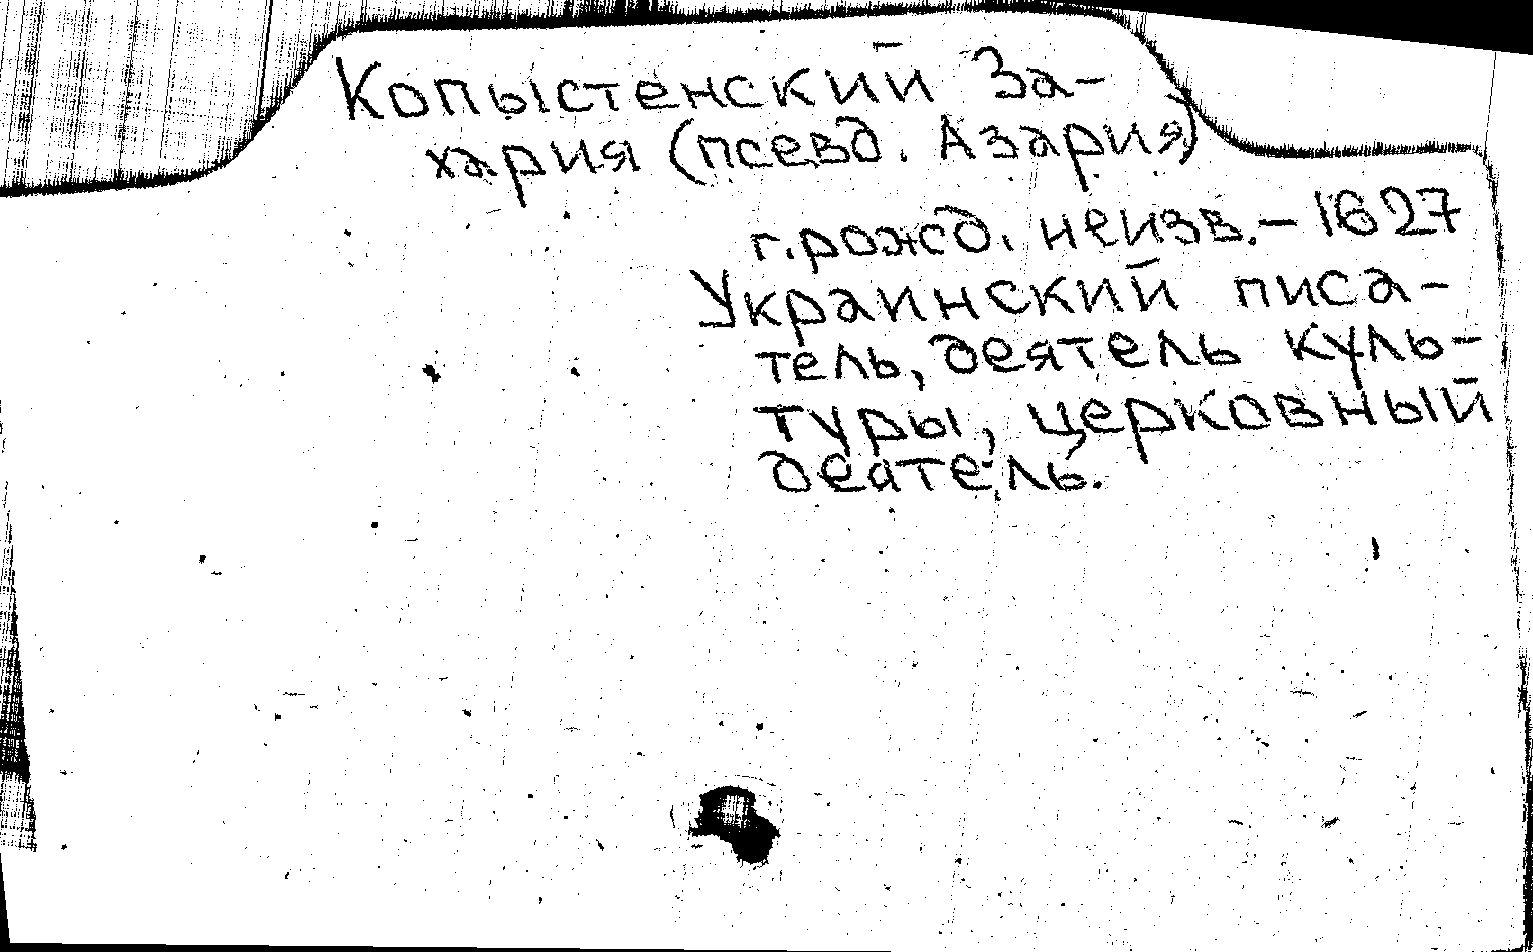 Копыстенский За-
хария (псевд. Азария)
г. рожд. неизв. – 1627
Украинский писа-
тель, деятель куль-
туры, церковный
деятель.